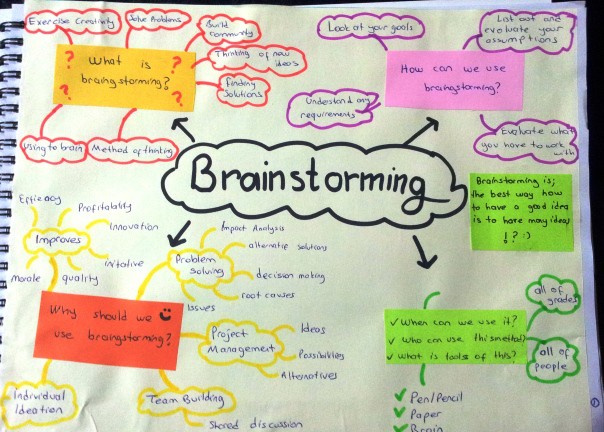 Exercise Creativity
Solve Problems
Build
community
Thinking of new
ideas
Finding
Solutions
What is
braingstorming?
? ? ? ?
Using to brain
Method of thinking
Look at your goals
List out and
evaluate your
assumptions
How can we use
braingstorming?
Understand any
requirements
Evaluate what
you have to work
with
Brainstorming
Brainstorming is;
the best way how
to have a good idea
is to have many ideas
!? :)
Efficacy
Profitability
Innovation
Improves
Initative
Morale
quality
Impact Analysis
alternatif solutions
Problem
solving
decision making
root causes
Issues
Why should we
use braingstorming?
Project
Management
Ideas
Possibilities
Alternatives
Individual
Ideation
Team Building
Shared discussion
all of
grades
✓ When can we use it?
✓ Who can use this method?
✓ What is tools of this?
all of
people
✓ Pen/Pencil
✓ Paper
✓ Brain